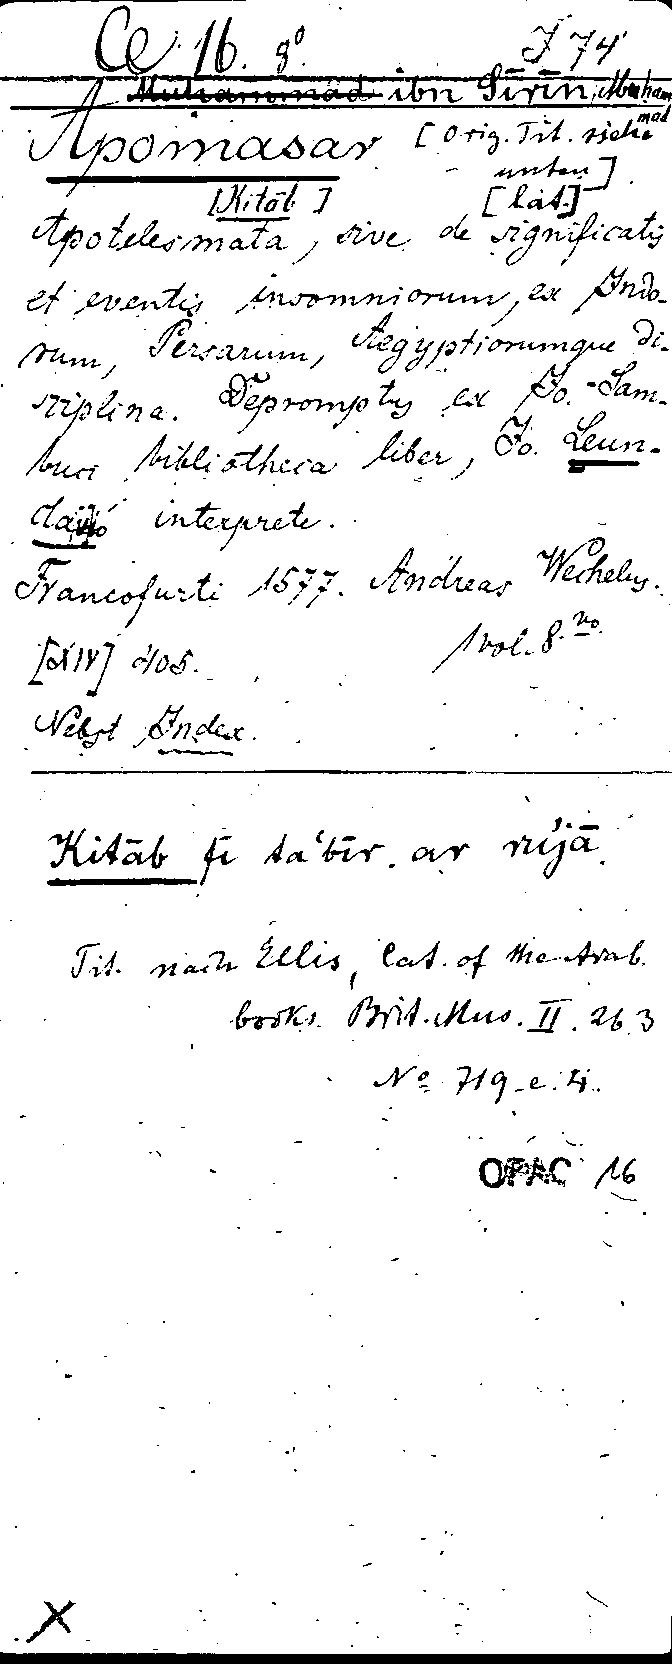 Ce 16. 8° J 74
Muhammad ibn Sīrīn, Muhammad
Apomasar [Orig. Tit. siehe
unten]
[Kitāb] [lat.]
Apotelesmata, sive de significatis
et eventis insomniorum, ex Indo-
rum, Persarum, Aegyptiorumque di-
sciplina. Depromptus ex Jo. Sam-
buci bibliotheca liber, Jo. Leun-
claio interprete.
Francofurti 1577. Andreas Wechelus.
[XIV] 405. 1 vol. 8.vo
Nebst Index.
Kitāb fī ta'bīr ar rujā
Tit. nach Ellis, Cat. of the Arab.
books Brit. Mus. II. 263
No 719. e. 4.
OPAC 16
X